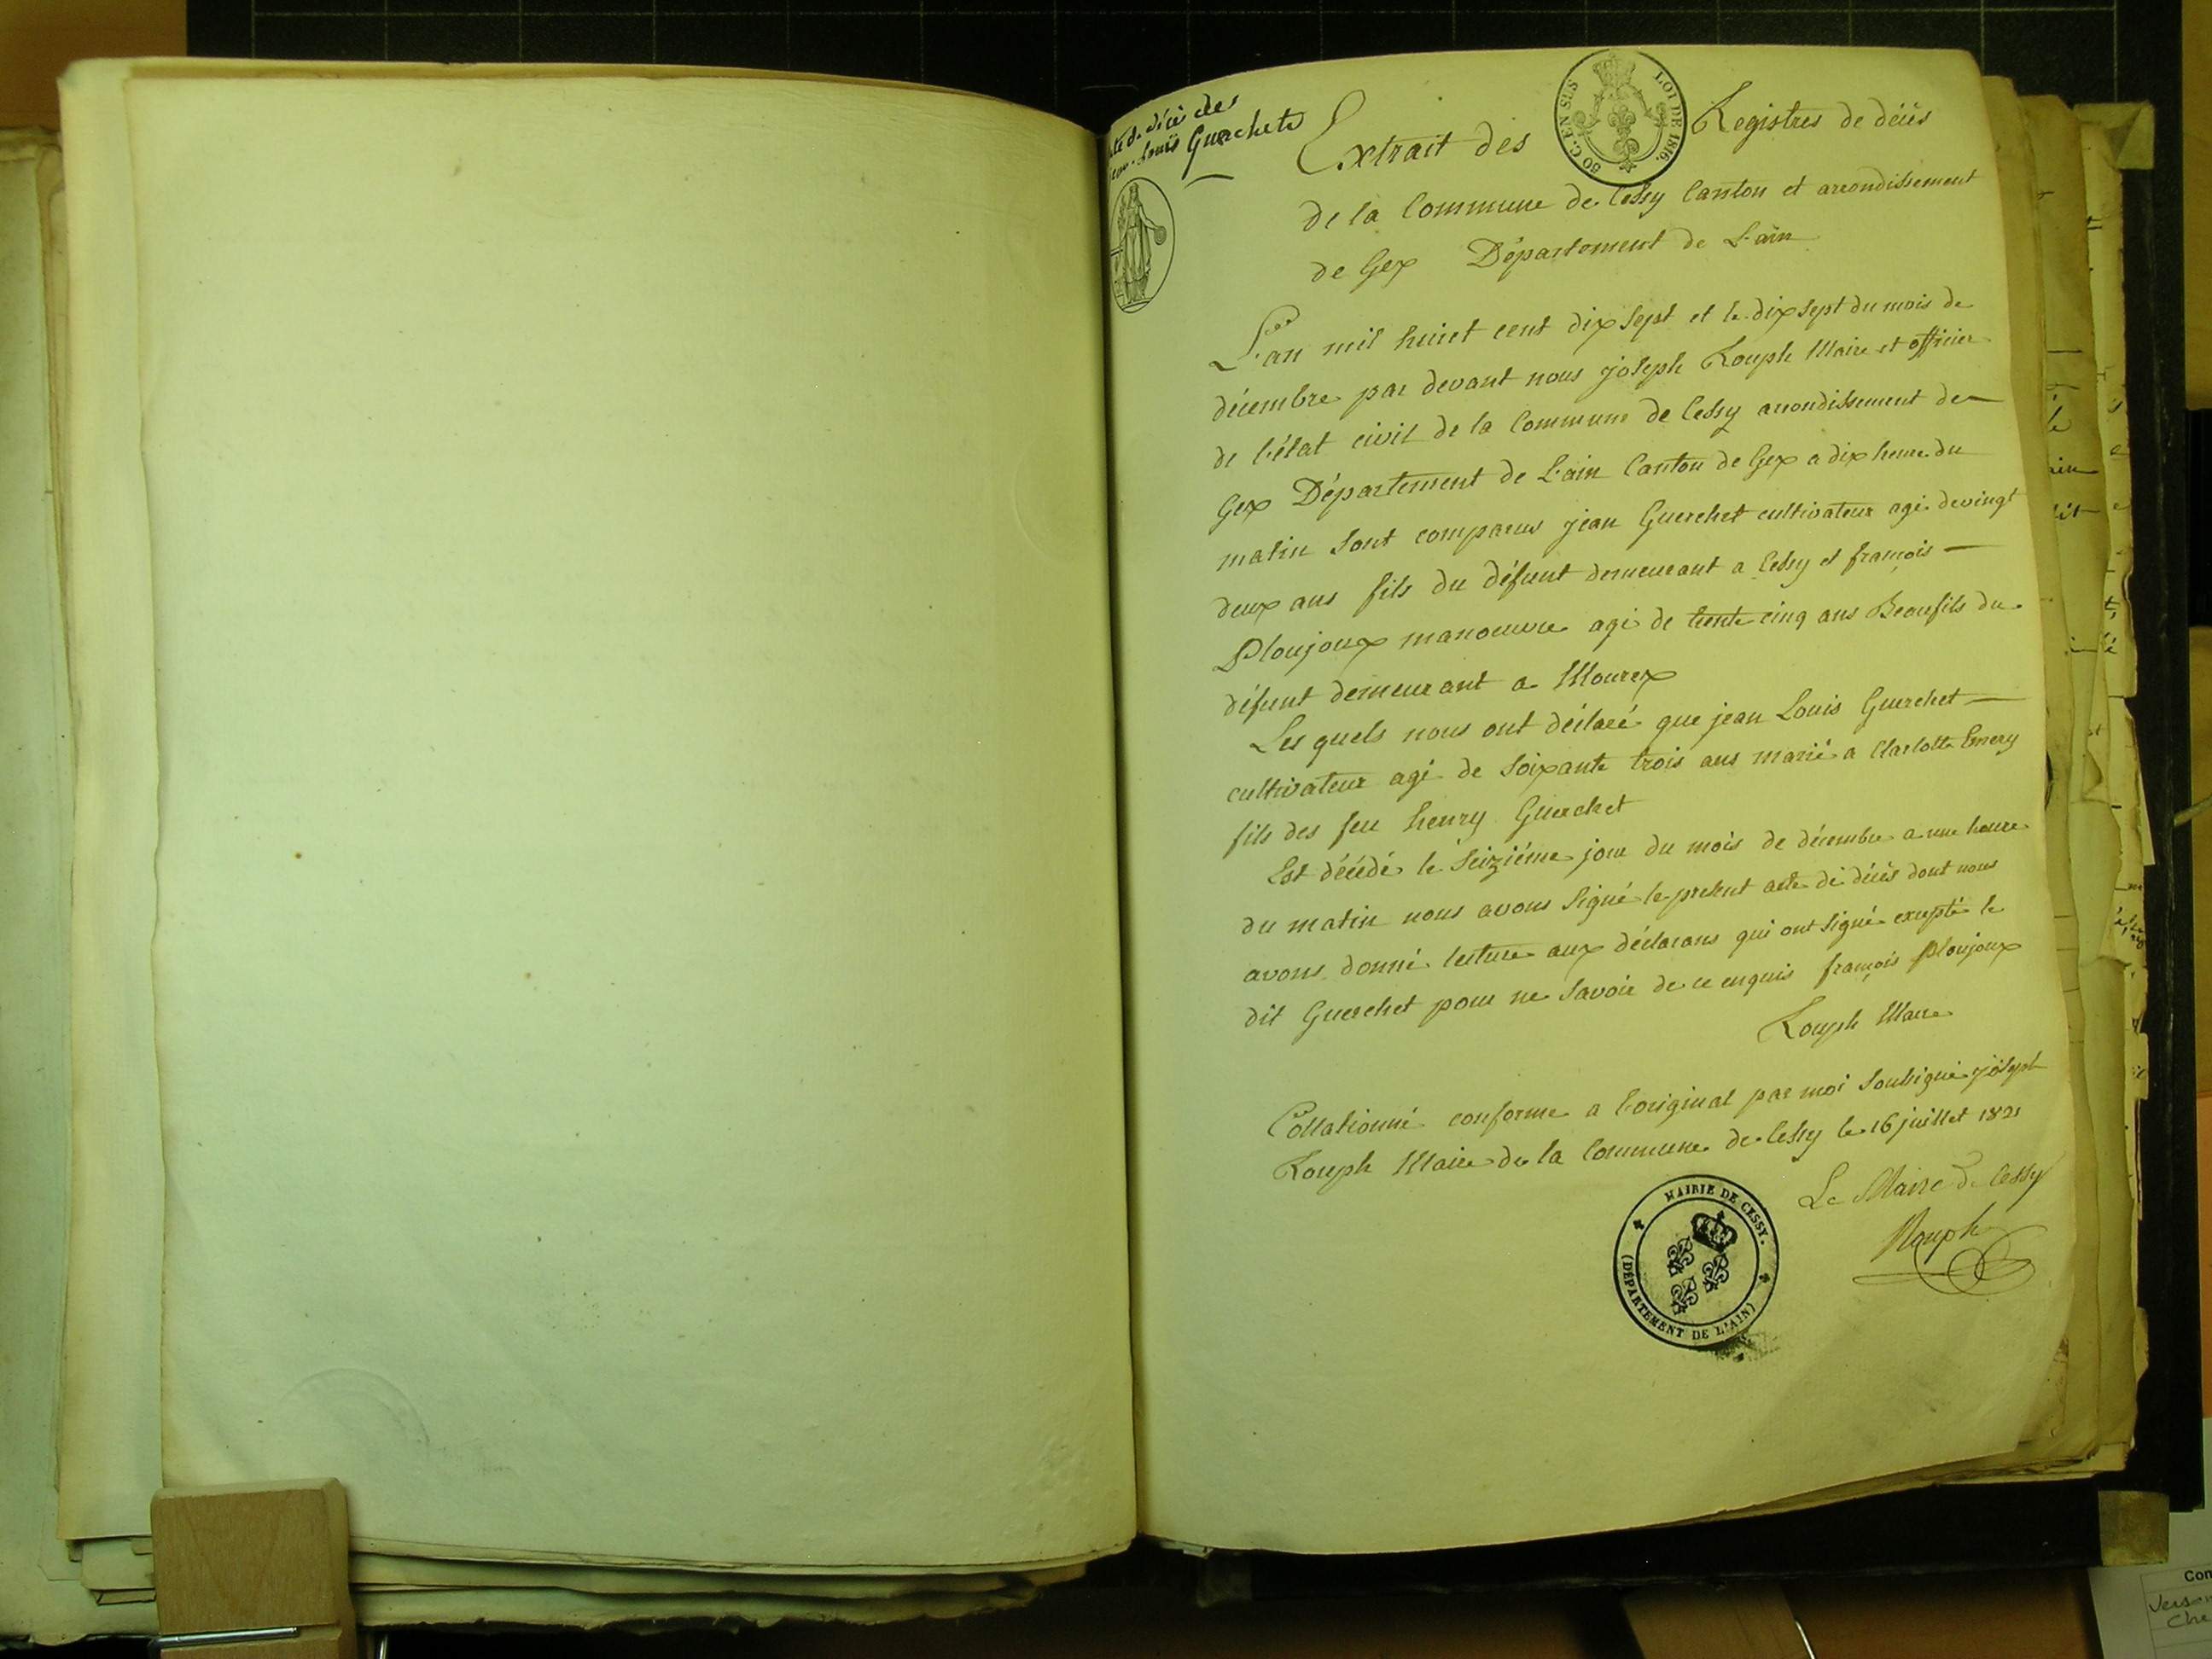 de décès des
Louis Guerchet
Extrait des Registres de décès
80 C. EN SUS LOI DE 1816.
de la Commune de Cessy Canton et arrondissement
de Gex Département de L'ain
L'an mil huiet cent dix sept et le dix sept du mois de
décembre par devant nous joseph Rouph Maire et officier
de l'état civil de la Commune de Cessy arrondissement de
Gex Département de L'ain Canton de Gex a dix heure du
matin sont comparus jean Guerchet cultivateur agé de vingt
deux ans fils du défunt demeurant a Cessy et françois
Ploujoux manoeuvre agé de trente cinq ans Beaufils du
défunt demeurant a Mourex
Les quels nous ont déclaré que jean Louis Guerchet
cultivateur agé de soixante trois ans marié a Charlotte Emery
fils des feu henry Guerchet
Est décédé le seiziéme jour du mois de décembre a une heure
du matin nous avons signé le present acte de décès dont nous
avons donné lecture aux déclarans qui ont signé excepté le
dit Guerchet pour ne savoir de ce enquis françois Ploujoux
Rouph Maire
Collationné conforme a l'original par moi soussigné joseph
Rouph Maire de la Commune de Cessy le 16 juillet 1821
Le Maire de Cessy
Rouph
MAIRIE DE CESSY.
(DÉPARTEMENT DE L'AIN)